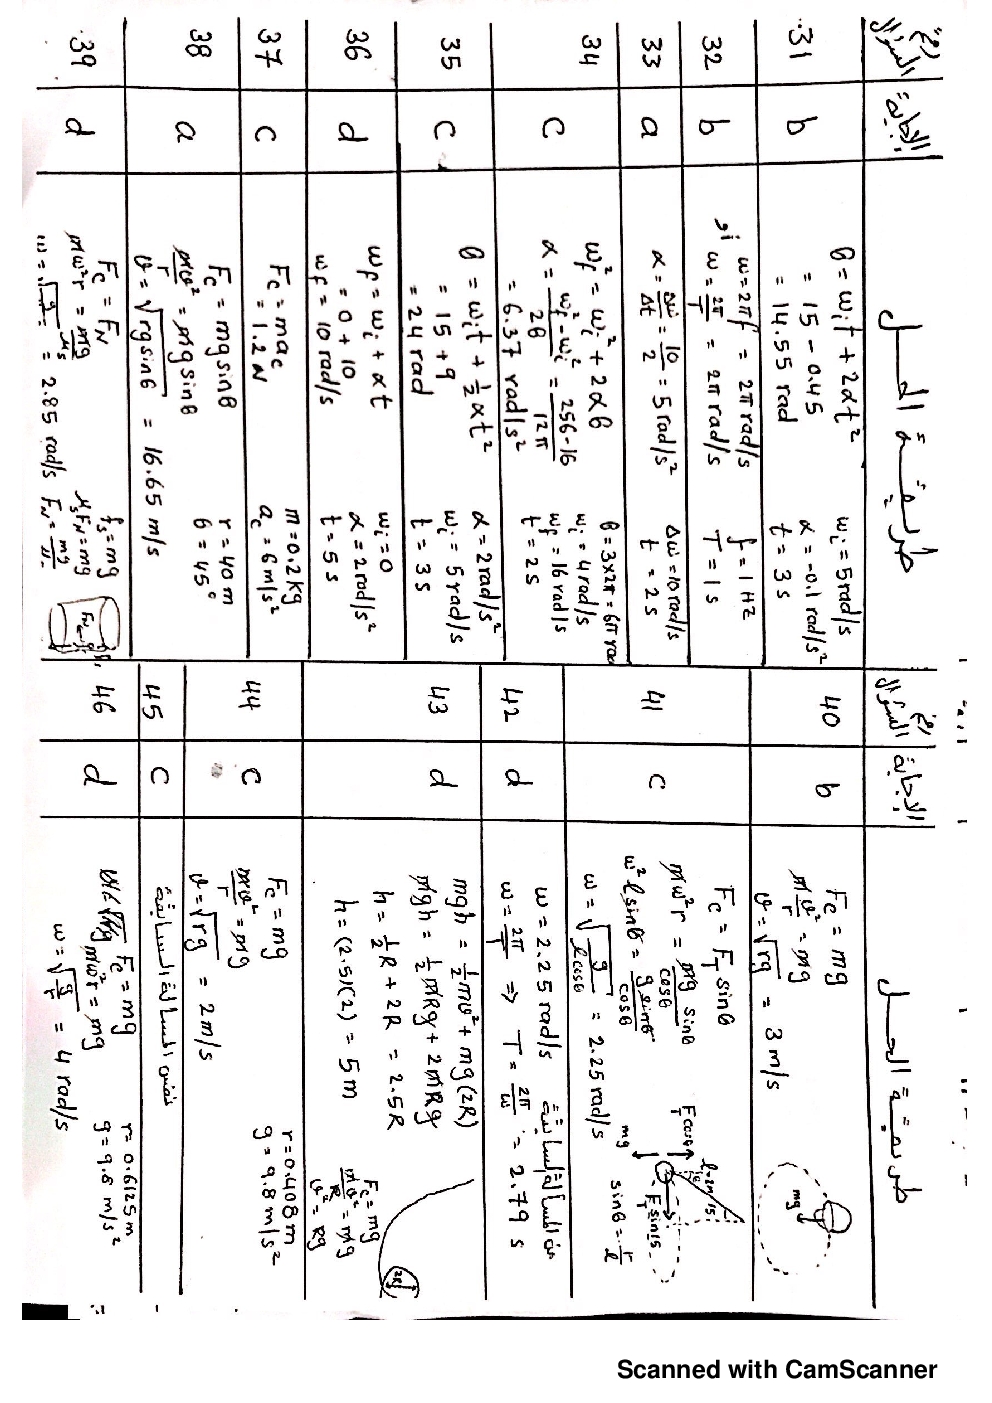 رقم السؤال
الإجابة
طريقة الحل
31
b
θ = ωᵢt + 2αt²
= 15 - 0.45
= 14.55 rad
ωᵢ = 5 rad/s
α = -0.1 rad/s²
t = 3 s
32
b
ω = 2πf = 2π rad/s
أو ω = 2π/T = 2π rad/s
f = 1 Hz
T = 1 s
33
a
α = Δω/Δt = 10/2 = 5 rad/s²
Δω = 10 rad/s
t = 2 s
34
c
ωf² = ωᵢ² + 2αθ
α = (ωf² - ωᵢ²)/2θ = (256 - 16)/12π
= 6.37 rad/s²
θ = 3×2π = 6π rad
ωᵢ = 4 rad/s
ωf = 16 rad/s
t = 2 s
35
c
θ = ωᵢt + ½αt²
= 15 + 9
= 24 rad
α = 2 rad/s²
ωᵢ = 5 rad/s
t = 3 s
36
d
ωf = ωᵢ + αt
= 0 + 10
ωf = 10 rad/s
ωᵢ = 0
α = 2 rad/s²
t = 5 s
37
c
Fc = mac
= 1.2 N
m = 0.2 kg
ac = 6 m/s²
38
a
Fc = mg sinθ
mv²/r = mg sinθ
v = √(rg sinθ) = 16.65 m/s
r = 40 m
θ = 45°
39
d
Fc = FN
mω²r = mg/μs
ω = = 2.85 rad/s
fs = mg
μsFN = mg
FN = mg/
FN
رقم السؤال
الإجابة
طريقة الحل
40
b
Fc = mg
mv²/r = mg
v = √(rg) = 3 m/s
mg
41
c
Fc = FT sinθ
mω²r = mg/cosθ sinθ
ω²ℓ sinθ = g sinθ/cosθ
ω = √(g/(ℓ cosθ)) = 2.25 rad/s
mg
ℓ = 2m
15
F sin15
sinθ = r/ℓ
42
d
ω = 2.25 rad/s من المسألة السابقة
ω = 2π/T ⇒ T = 2π/ω = 2.79 s
43
d
mgh = ½mv² + mg(2R)
mgh = ½mRg + 2mRg
h = ½R + 2R = 2.5R
h = (2.5)(2) = 5 m
Fc = mg
mv²/R = mg
v² = Rg
2R
44
c
Fc = mg
mv²/r = mg
v = √(rg) = 2 m/s
r = 0.408 m
g = 9.8 m/s²
45
c
نفس المسألة السابقة
46
d
Fc = mg
mω²r = mg
ω = √(g/r) = 4 rad/s
r = 0.6125 m
g = 9.8 m/s²
Scanned with CamScanner